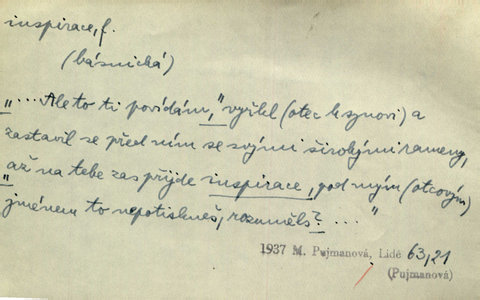 inspirace, f.
(básnická)
„....Ale to ti povídám," vyřkl (otec k synovi) a
zastavil se před ním se svými širokými rameny,
„až na tebe zas přijde inspirace, pod mým (otcovým)
jménem to nepotiskneš, rozuměls? ...."
1937 M. Pujmanová, Lidé 63,21
(Pujmanová)